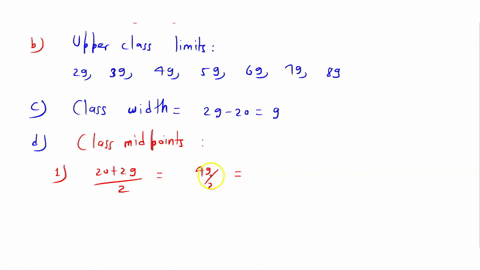 b) Upper class limits:
29, 39, 49, 59, 69, 79, 89
c) Class width = 29-20 = 9
d) Class midpoints:
1) 20+29/2 = 49/2 =